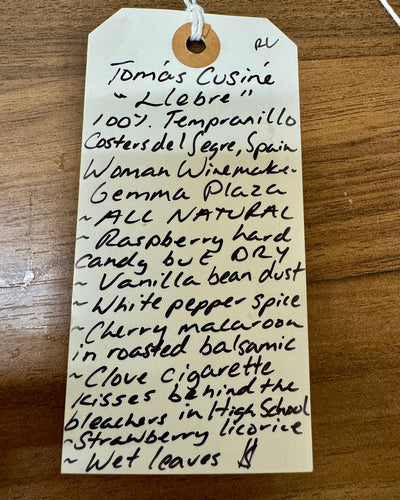 RV
Tomás Cusiné
"Llebre"
100% Tempranillo
Costers del Segre, Spain
Woman Winemaker
Gemma Plaza
~ ALL NATURAL
~ Raspberry hard
candy but DRY
~ Vanilla bean dust
~ White pepper spice
~ Cherry macaroon
in roasted balsamic
~ Clove cigarette
kisses behind the
bleachers in High School
~ Strawberry licorice
~ Wet leaves $